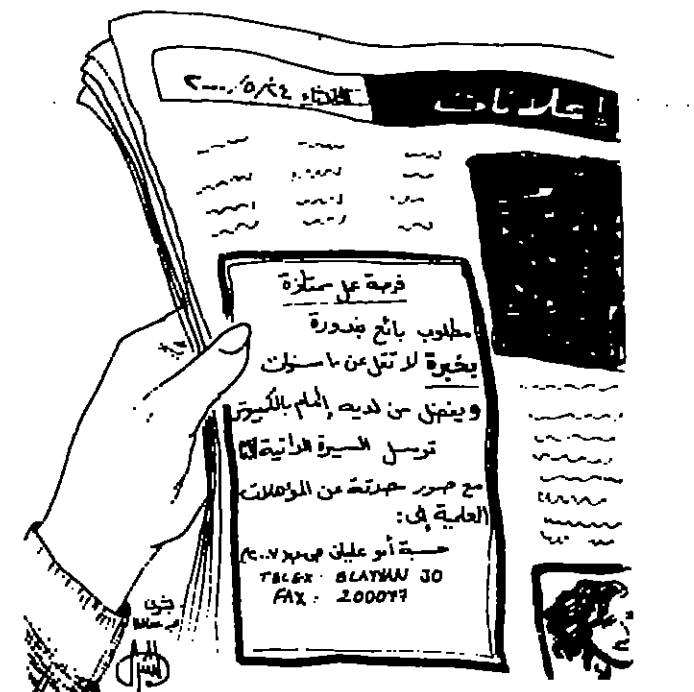 إعلانات
الثلاثاء ٢٤/٥/٢٠٠٠
فرصة عمل ممتازة
مطلوب بائع بندورة
بخبرة لا تقل عن ١٠ سنوات
ويفضل من لديه إلمام بالكمبيوتر
ترسل السيرة الذاتية
مع صور مصدقة عن المؤهلات
العلمية إلى:
حسبة أبو عليان
TELEX: OLAYYAN JO
FAX: 200077